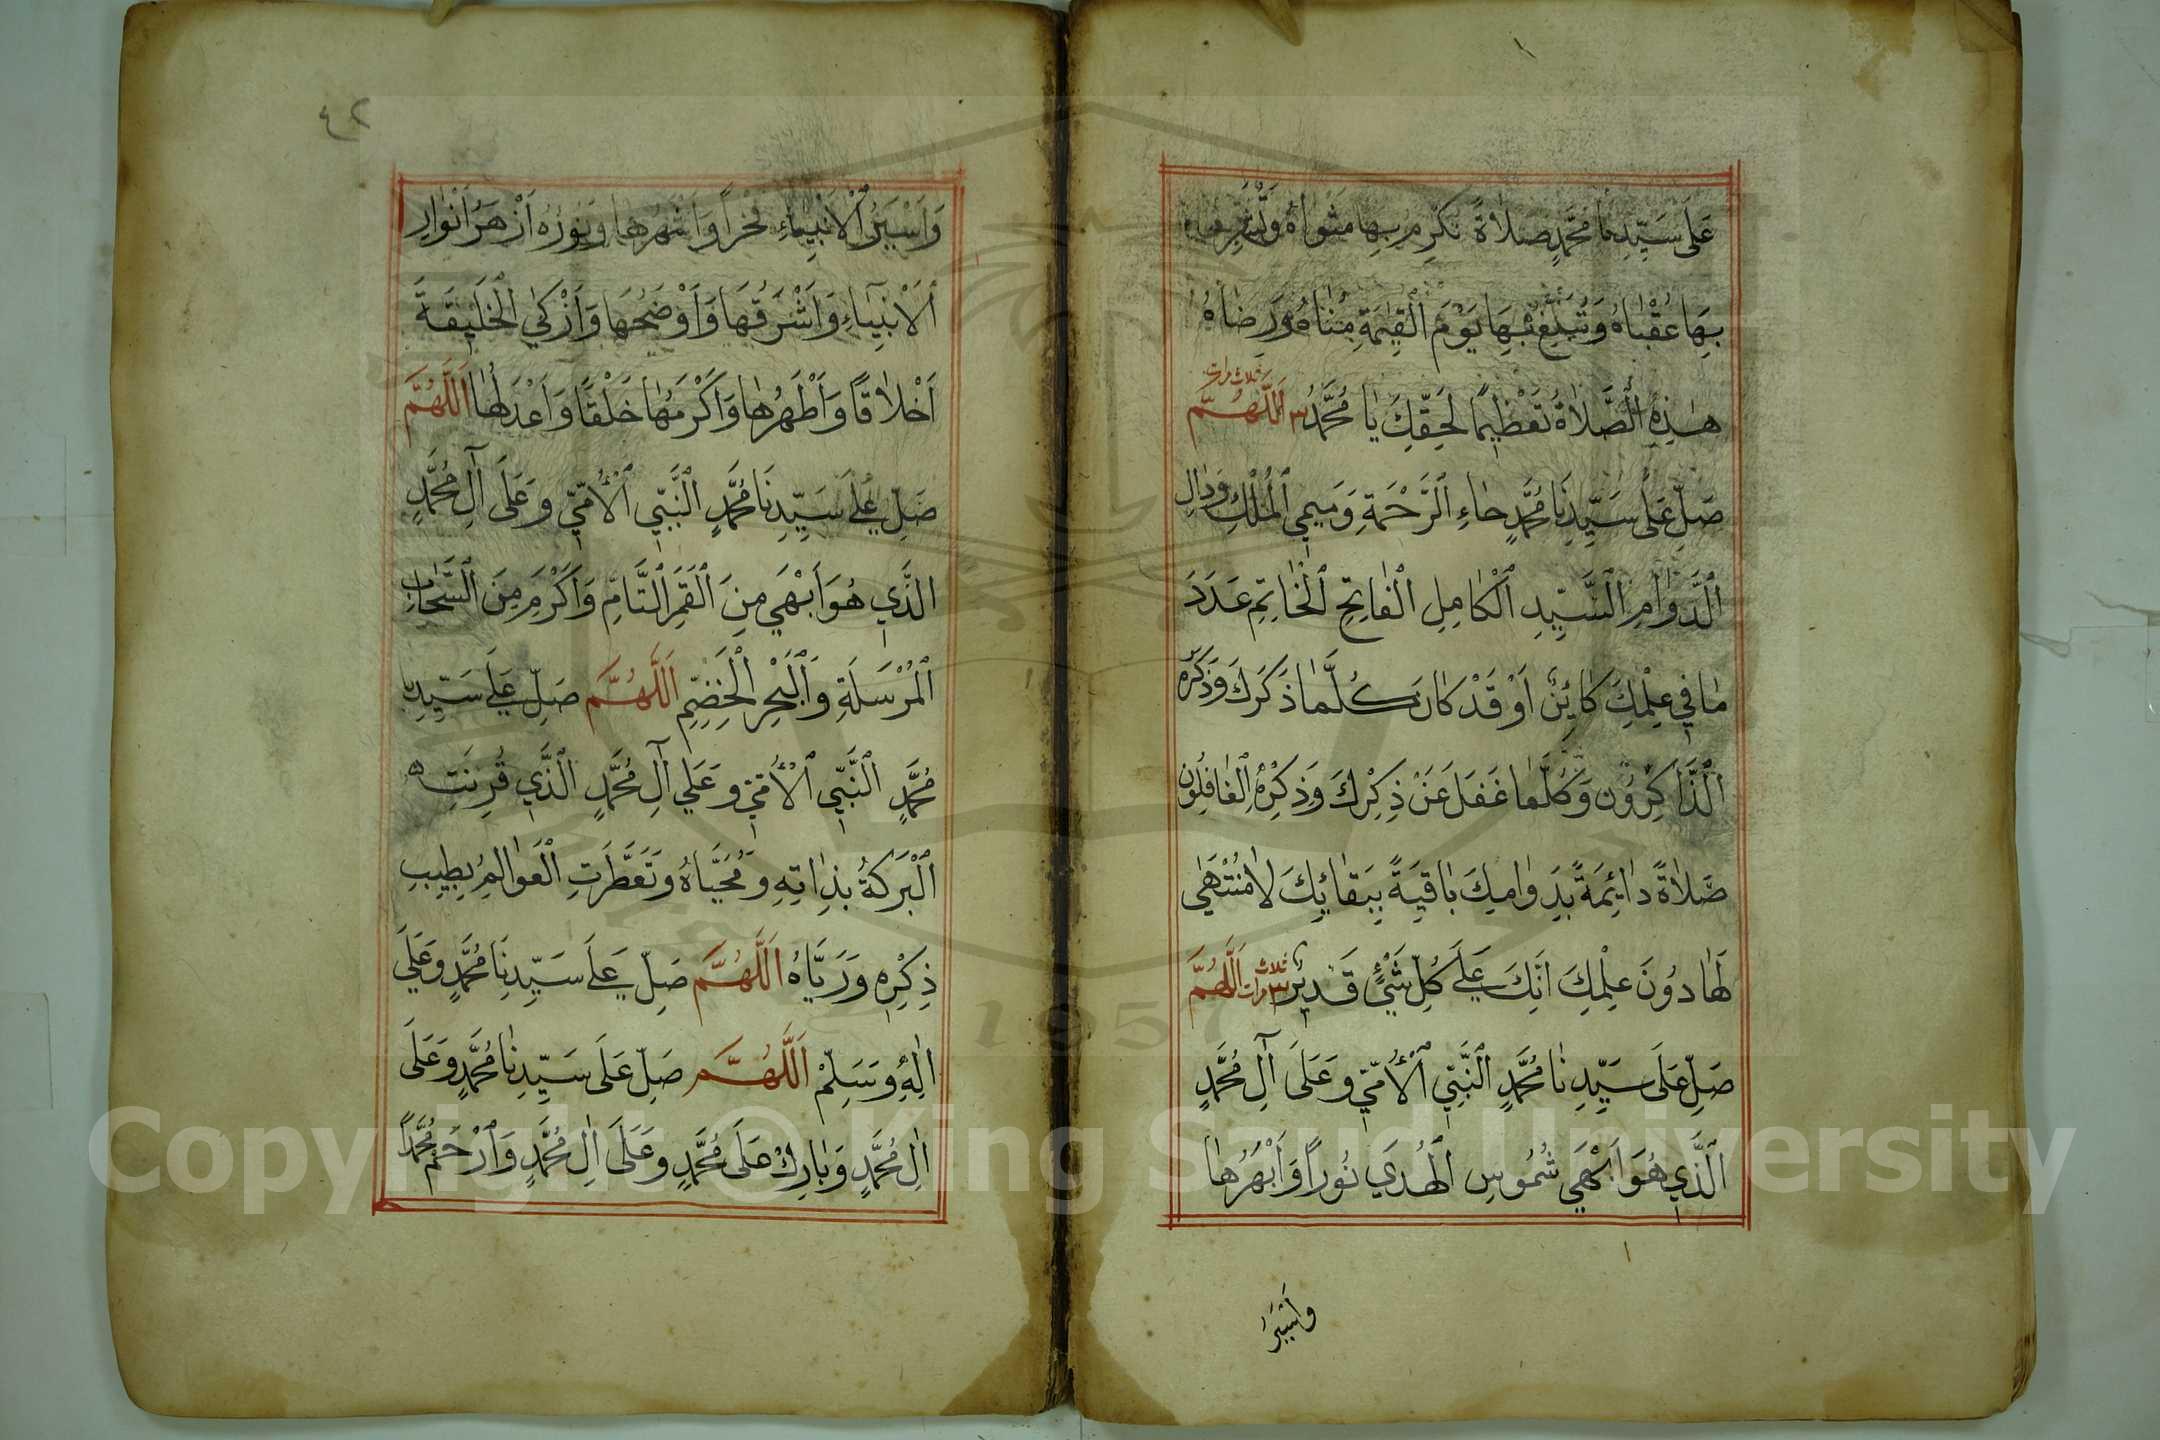 عَلَى سَيِّدِنَا مُحَمَّدٍ صَلَاةً تُكْرِمُ بِهَا مَثْوَاهُ وَتُشَرِّفُ
بِهَا عُقْبَاهُ وَتُبَلِّغُ بِهَا يَوْمَ الْقِيٰمَةِ مُنَاهُ وَرِضَاهُ
هٰذِهِ الصَّلَاةُ تَعْظِيمًا لِحَقِّكَ يَا مُحَمَّدُ ٣ ثلاث مرات اَللّٰهُمَّ
صَلِّ عَلَى سَيِّدِنَا مُحَمَّدٍ حَاءِ الرَّحْمَةِ وَمِيمَيِ الْمُلْكِ وَدَالِ
الدَّوَامِ السَّيِّدِ الْكَامِلِ الْفَاتِحِ الْخَاتِمِ عَدَدَ
مَا فِي عِلْمِكَ كَائِنٌ اَوْ قَدْ كَانَ كُلَّمَا ذَكَرَكَ وَذَكَرَهُ
الذَّاكِرُونَ وَكُلَّمَا غَفَلَ عَنْ ذِكْرِكَ وَذِكْرِهِ الْغَافِلُونَ
صَلَاةً دَائِمَةً بِدَوَامِكَ بَاقِيَةً بِبَقَائِكَ لَا مُنْتَهٰى
لَهَا دُونَ عِلْمِكَ اِنَّكَ عَلَى كُلِّ شَيْءٍ قَدِيرٌ ٣ ثلاث مرات اَللّٰهُمَّ
صَلِّ عَلَى سَيِّدِنَا مُحَمَّدٍ النَّبِيِّ الْأُمِّيِّ وَعَلَى آلِ مُحَمَّدٍ
الَّذِي هُوَ اَبْهَى شُمُوسِ الْهُدَى نُورًا وَاَبْهَرُهَا
واسير
٤٢
وَاَسْيَرُ الْاَنْبِيَاءِ فَخْرًا وَاَشْهَرُهَا وَنُورُهُ اَزْهَرُ اَنْوَارِ
الْاَنْبِيَاءِ وَاَشْرَقُهَا وَاَوْضَحُهَا وَاَزْكَى الْخَلِيقَةِ
اَخْلَاقًا وَاَطْهَرُهَا وَاَكْرَمُهَا خَلْقًا وَاَعْدَلُهَا اَللّٰهُمَّ
صَلِّ عَلَى سَيِّدِنَا مُحَمَّدٍ النَّبِيِّ الْأُمِّيِّ وَعَلَى آلِ مُحَمَّدٍ
الَّذِي هُوَ اَبْهَى مِنَ الْقَمَرِ التَّامِّ وَاَكْرَمُ مِنَ السَّحَابِ
الْمُرْسَلَةِ وَالْبَحْرِ الْخِضَمِّ اَللّٰهُمَّ صَلِّ عَلَى سَيِّدِنَا
مُحَمَّدٍ النَّبِيِّ الْأُمِّيِّ وَعَلَى آلِ مُحَمَّدٍ الَّذِي قُرِنَتِ
الْبَرَكَةُ بِذَاتِهِ وَمُحَيَّاهُ وَتَعَطَّرَتِ الْعَوَالِمُ بِطِيبِ
ذِكْرِهِ وَرَيَّاهُ اَللّٰهُمَّ صَلِّ عَلَى سَيِّدِنَا مُحَمَّدٍ وَعَلَى
اٰلِهِ وَسَلِّمْ اَللّٰهُمَّ صَلِّ عَلَى سَيِّدِنَا مُحَمَّدٍ وَعَلَى
اٰلِ مُحَمَّدٍ وَبَارِكْ عَلَى مُحَمَّدٍ وَعَلَى اٰلِ مُحَمَّدٍ وَارْحَمْ مُحَمَّدًا
Copyright © King Saud University
1957